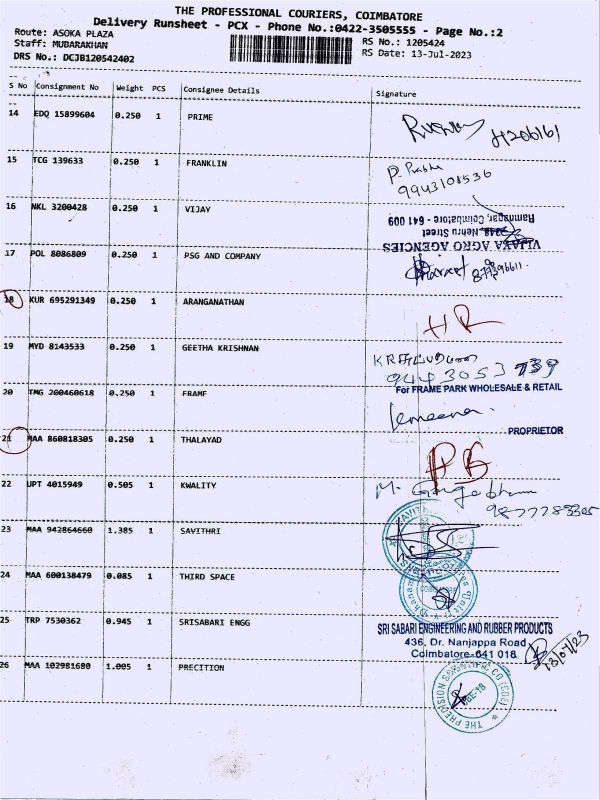 THE PROFESSIONAL COURIERS, COIMBATORE
Delivery Runsheet - PCX - Phone No.:0422-3505555 - Page No.:2
Route: ASOKA PLAZA
Staff: MUBARAKHAN
DRS No.: DCJB120542402
RS No.: 1205424
RS Date: 13-Jul-2023
S No Consignment No Weight PCS Consignee Details Signature
14 EDQ 15899604 0.250 1 PRIME
15 TCG 139633 0.250 1 FRANKLIN
P. Prabha
9943108536
16 NKL 3200428 0.250 1 VIJAY
VIJAYA AGRO AGENCIES
Nehru Street
Ramnagar, Coimbatore - 641 009
17 POL 8086809 0.250 1 PSG AND COMPANY
18 KUR 695291349 0.250 1 ARANGANATHAN
HR
19 MYD 8143533 0.250 1 GEETHA KRISHNAN
9443053739
20 TMG 200460618 0.250 1 FRAME
For FRAME PARK WHOLESALE & RETAIL
PROPRIETOR
21 MAA 860818305 0.250 1 THALAYAD
22 UPT 4015949 0.505 1 KWALITY
23 MAA 942864660 1.385 1 SAVITHRI
24 MAA 600138479 0.085 1 THIRD SPACE
25 TRP 7530362 0.945 1 SRISABARI ENGG
SRI SABARI ENGINEERING AND RUBBER PRODUCTS
436, Dr. Nanjappa Road
Coimbatore-641 018
13/07/23
26 MAA 102981680 1.005 1 PRECITION
THE PRECISION SCIENTIFIC CO (CBE)
CBE-18